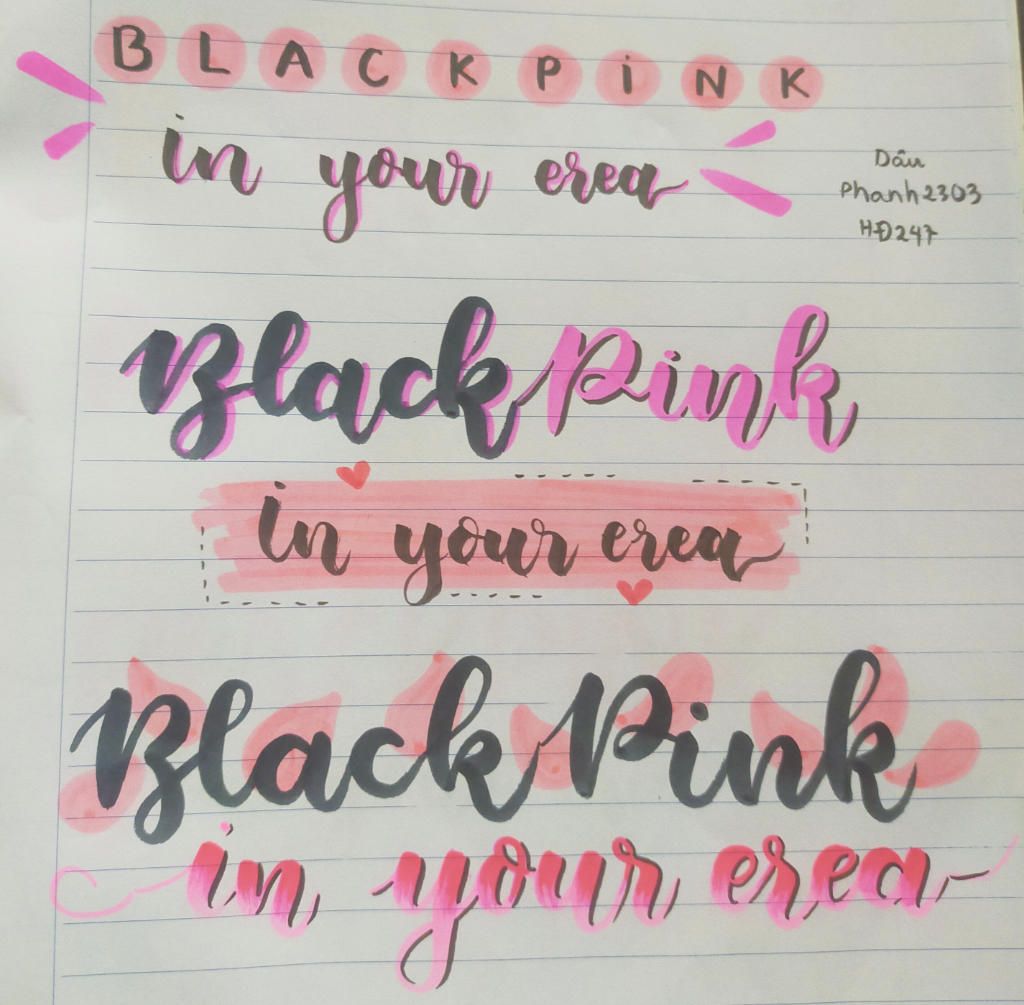 BLACKPiNK
in your erea
Dâu
Phanh2303
HĐ247
Black Pink
in your erea
Black Pink
in your erea